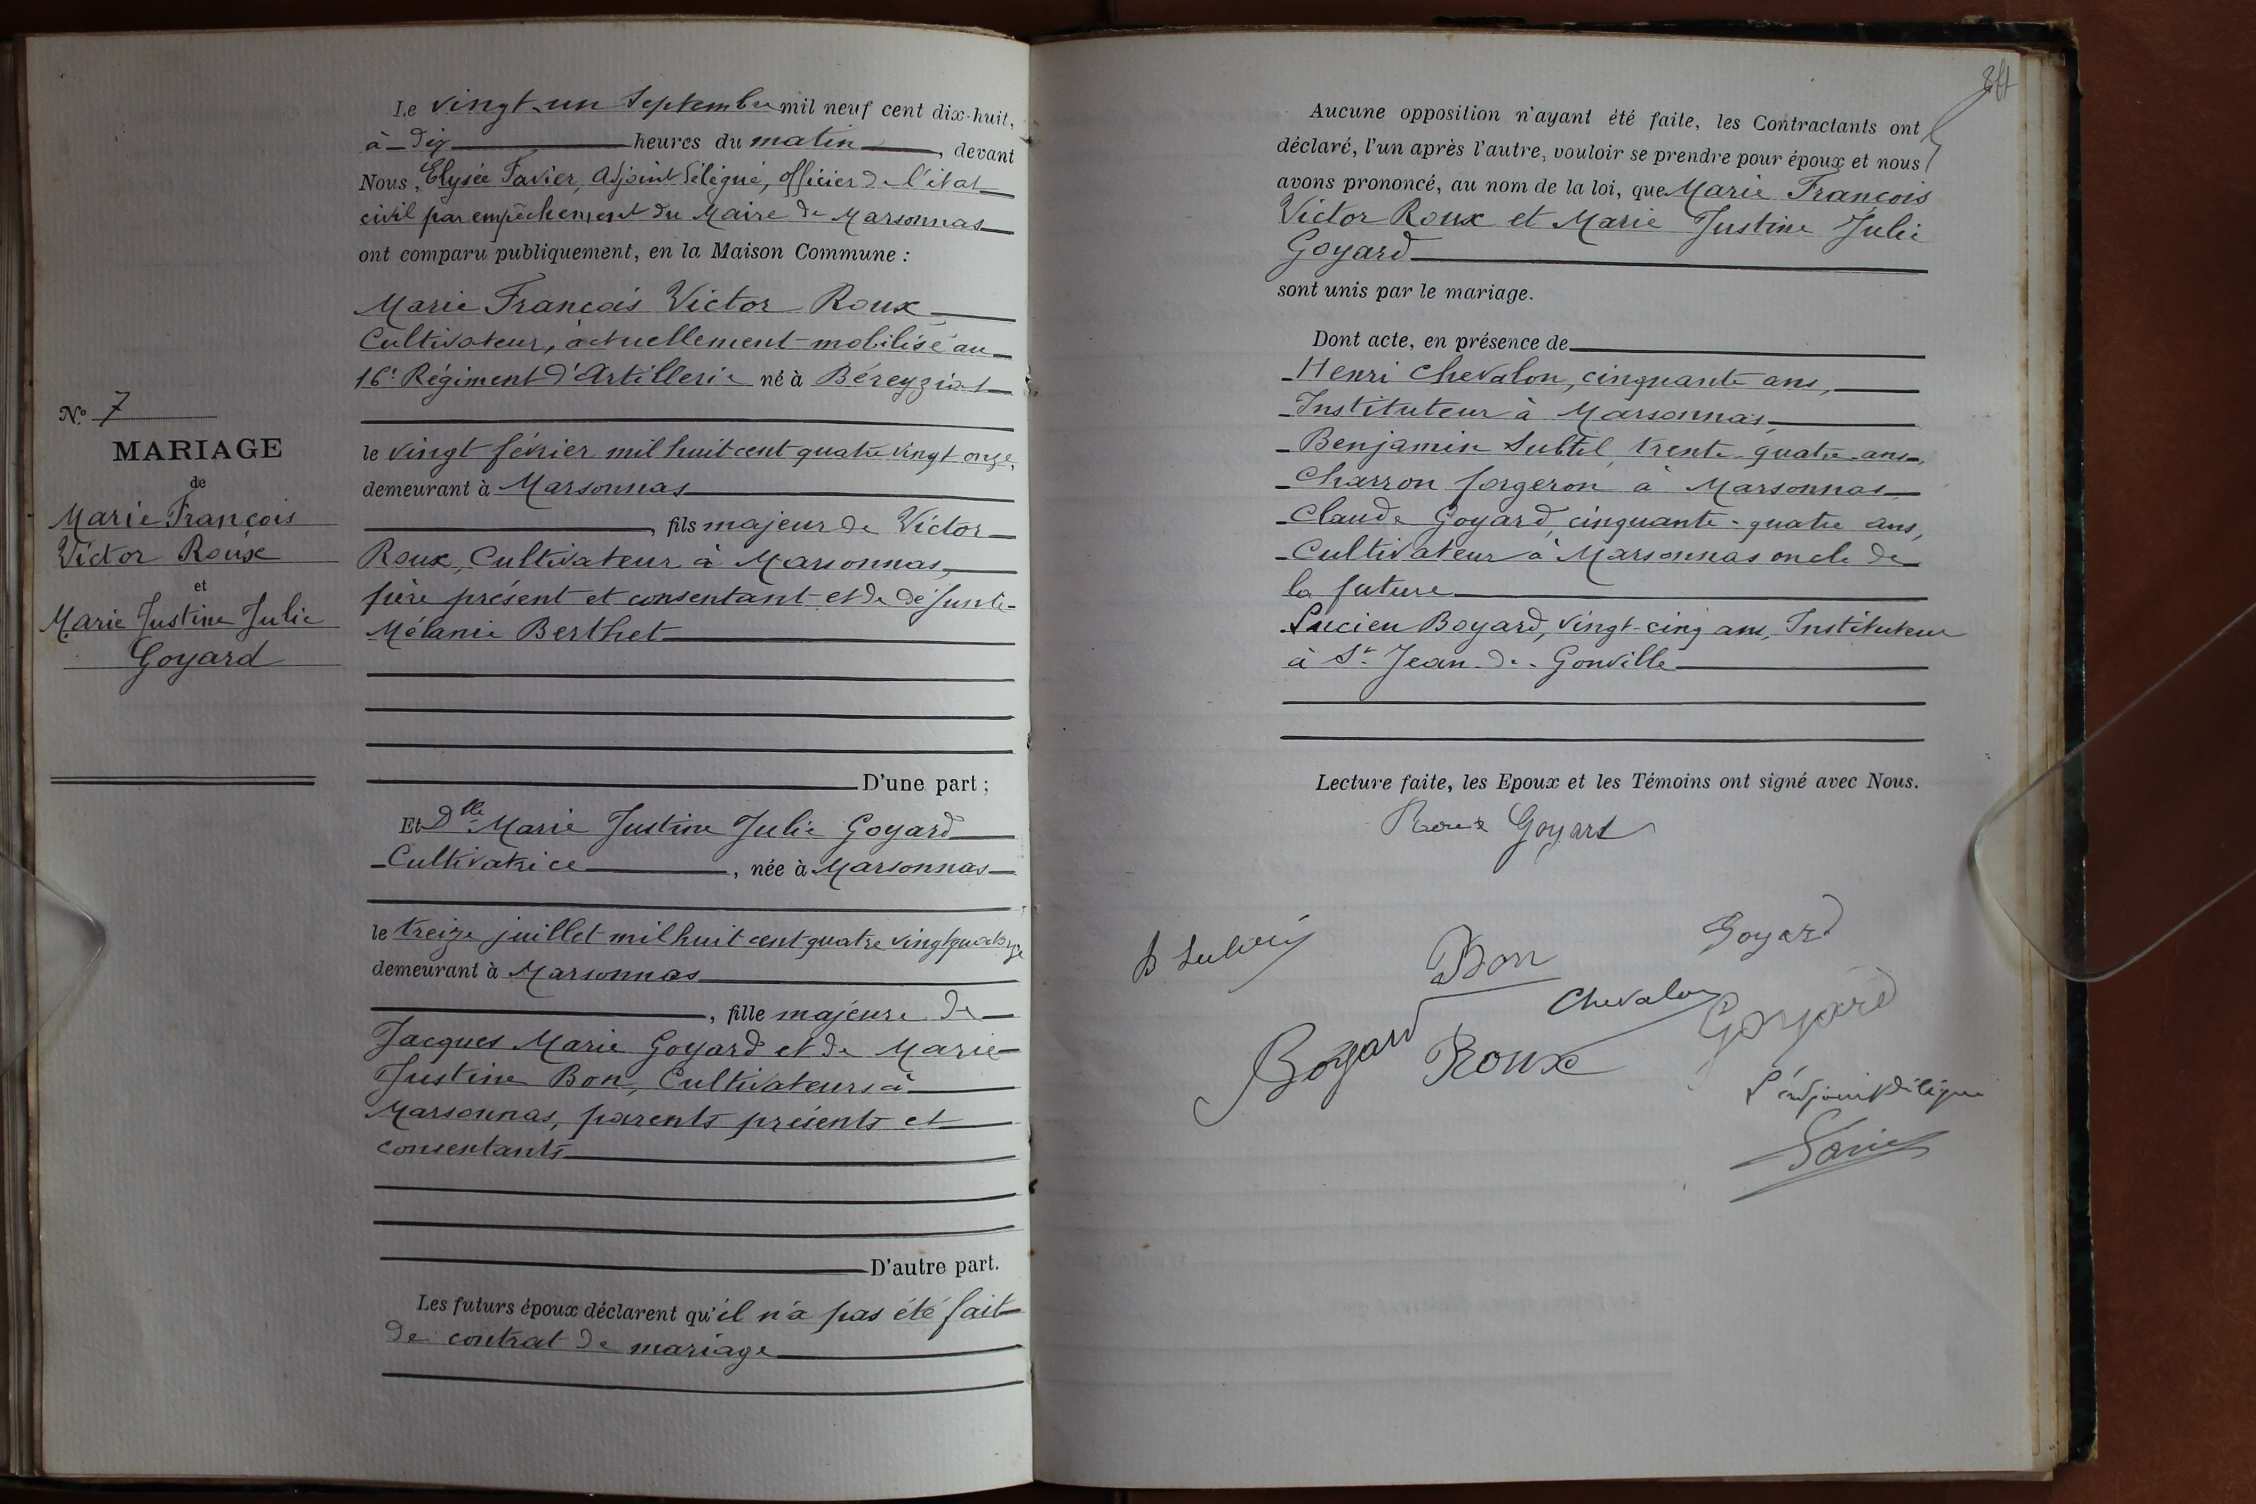 Le vingt-un Septembre mil neuf cent dix-huit,
à Dix heures du matin, devant
Nous, Elysée Favier, Adjoint délégué, officier de l'état
civil par empêchement du Maire de Marsonnas
ont comparu publiquement, en la Maison Commune :
Marie François Victor Roux
Cultivateur, actuellement mobilisé au
16e Régiment d'Artillerie né à Béreyziat
le vingt février mil huit cent quatre vingt onze,
demeurant à Marsonnas
, fils majeur de Victor
Roux, Cultivateur à Marsonnas,
père présent et consentant et de défunte
Mélanie Berthet
D'une part ;
N° 7
MARIAGE
de
Marie François
Victor Roux
et
Marie Justine Julie
Goyard
Et Dlle Marie Justine Julie Goyard
Cultivatrice, née à Marsonnas
le treize juillet mil huit cent quatre vingt quatorze
demeurant à Marsonnas
, fille majeure de
Jacques Marie Goyard et de Marie
Justine Bon, Cultivateurs à
Marsonnas, parents présents et
consentants
D'autre part.
Les futurs époux déclarent qu'il n'a pas été fait
de contrat de mariage
Aucune opposition n'ayant été faite, les Contractants ont
déclaré, l'un après l'autre, vouloir se prendre pour époux et nous
avons prononcé, au nom de la loi, que Marie François
Victor Roux et Marie Justine Julie
Goyard
sont unis par le mariage.
Dont acte, en présence de
Henri Chevalon, cinquante ans,
Instituteur à Marsonnas,
Benjamin Subtil, trente-quatre ans,
Charron forgeron à Marsonnas
Claude Goyard, cinquante-quatre ans,
Cultivateur à Marsonnas oncle de
la future
Lucien Boyard, vingt-cinq ans, Instituteur
à St Jean-de-Gonville
Lecture faite, les Epoux et les Témoins ont signé avec Nous.
Roux Goyard
Goyard
Bon
Chevalon
Goyard
Boyard
Roux
L'adjoint délégué
Favier